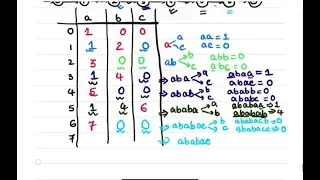 a b c
0 1 0 0
1 1 2 0 a a aa = 1
c ac = 0
2 3 0 0 ab b abb = 0
c abc = 0
3 1 4 0 ⇒ aba a abaa = 1
c abac = 0
4 5 0 0 ⇒ abab b ababb = 0
c ababc = 0
5 1 4 6 ⇒ ababa a ababaa = 1
b ababab = 4
6 7 0 0 ⇒ ababac b ababacb → 0
c ababacc → 0
7 ⇒ ababac